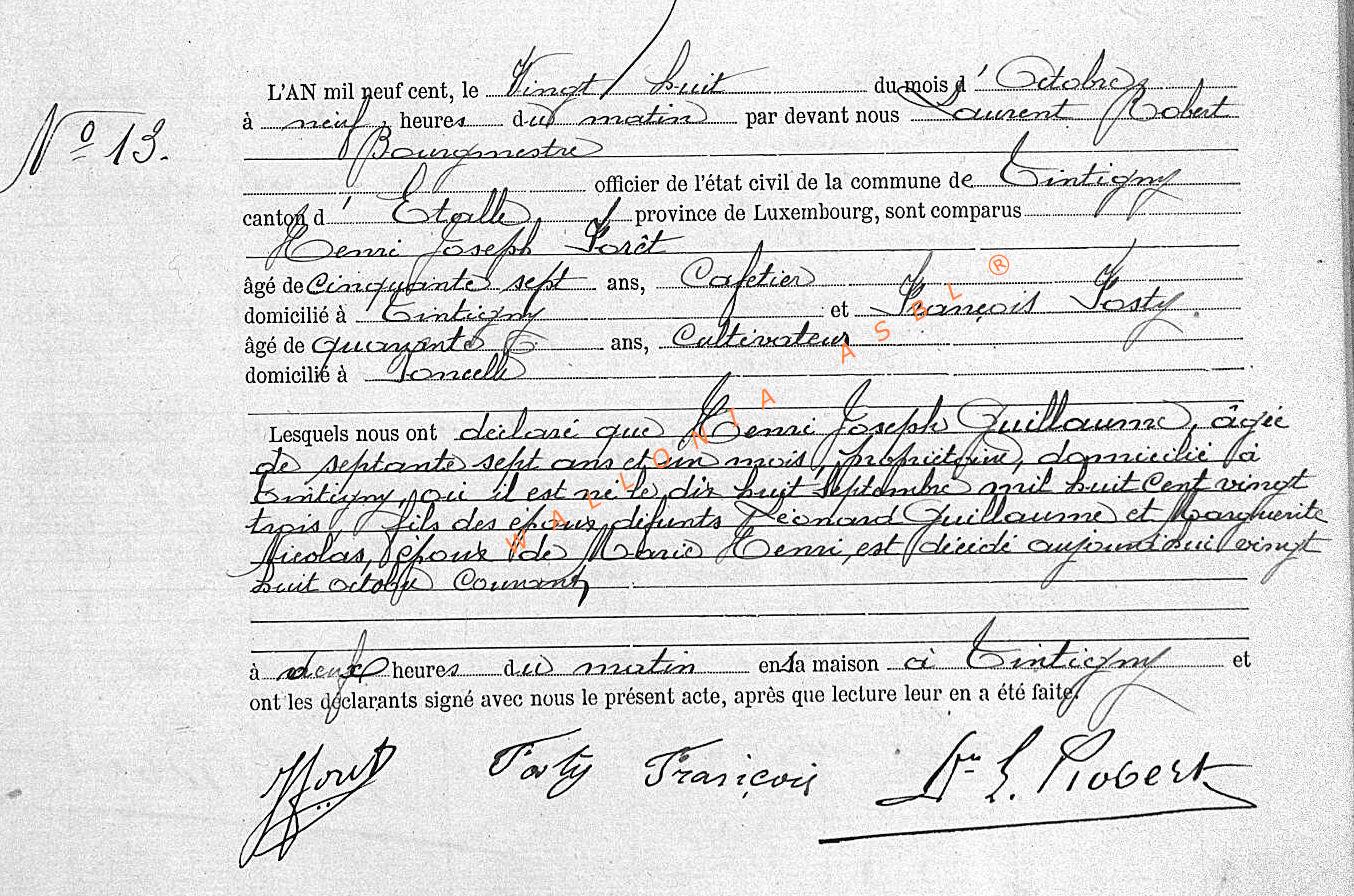 L'AN mil neuf cent, le Vingt huit du mois d' Octobre
à neuf heures du matin par devant nous Laurent Robert
Nº 13.
Bourgmestre
officier de l'état civil de la commune de Tintigny
canton d' Etalle, province de Luxembourg, sont comparus
Henri Joseph Forêt
âgé de Cinquante sept ans, Cafetier
domicilié à Tintigny et François Fosty
âgé de quarante ans, Cultivateur
domicilié à Poncelle
Lesquels nous ont déclaré que Henri Joseph Guillaume, âgée
de septante sept ans et un mois, propriétaire, domicilié à
Tintigny, où il est né le dix huit Septembre mil huit Cent vingt
trois, fils des époux défunts Léonard Guillaume et Marguerite
Nicolas, époux de Marie Henri, est décédé aujourd'hui vingt
huit octobre Courant,
à deux heures du matin en sa maison à Tintigny et
ont les déclarants signé avec nous le présent acte, après que lecture leur en a été faite.
Fosty François Dr. L. Robert
WALLONIA ASBL ®